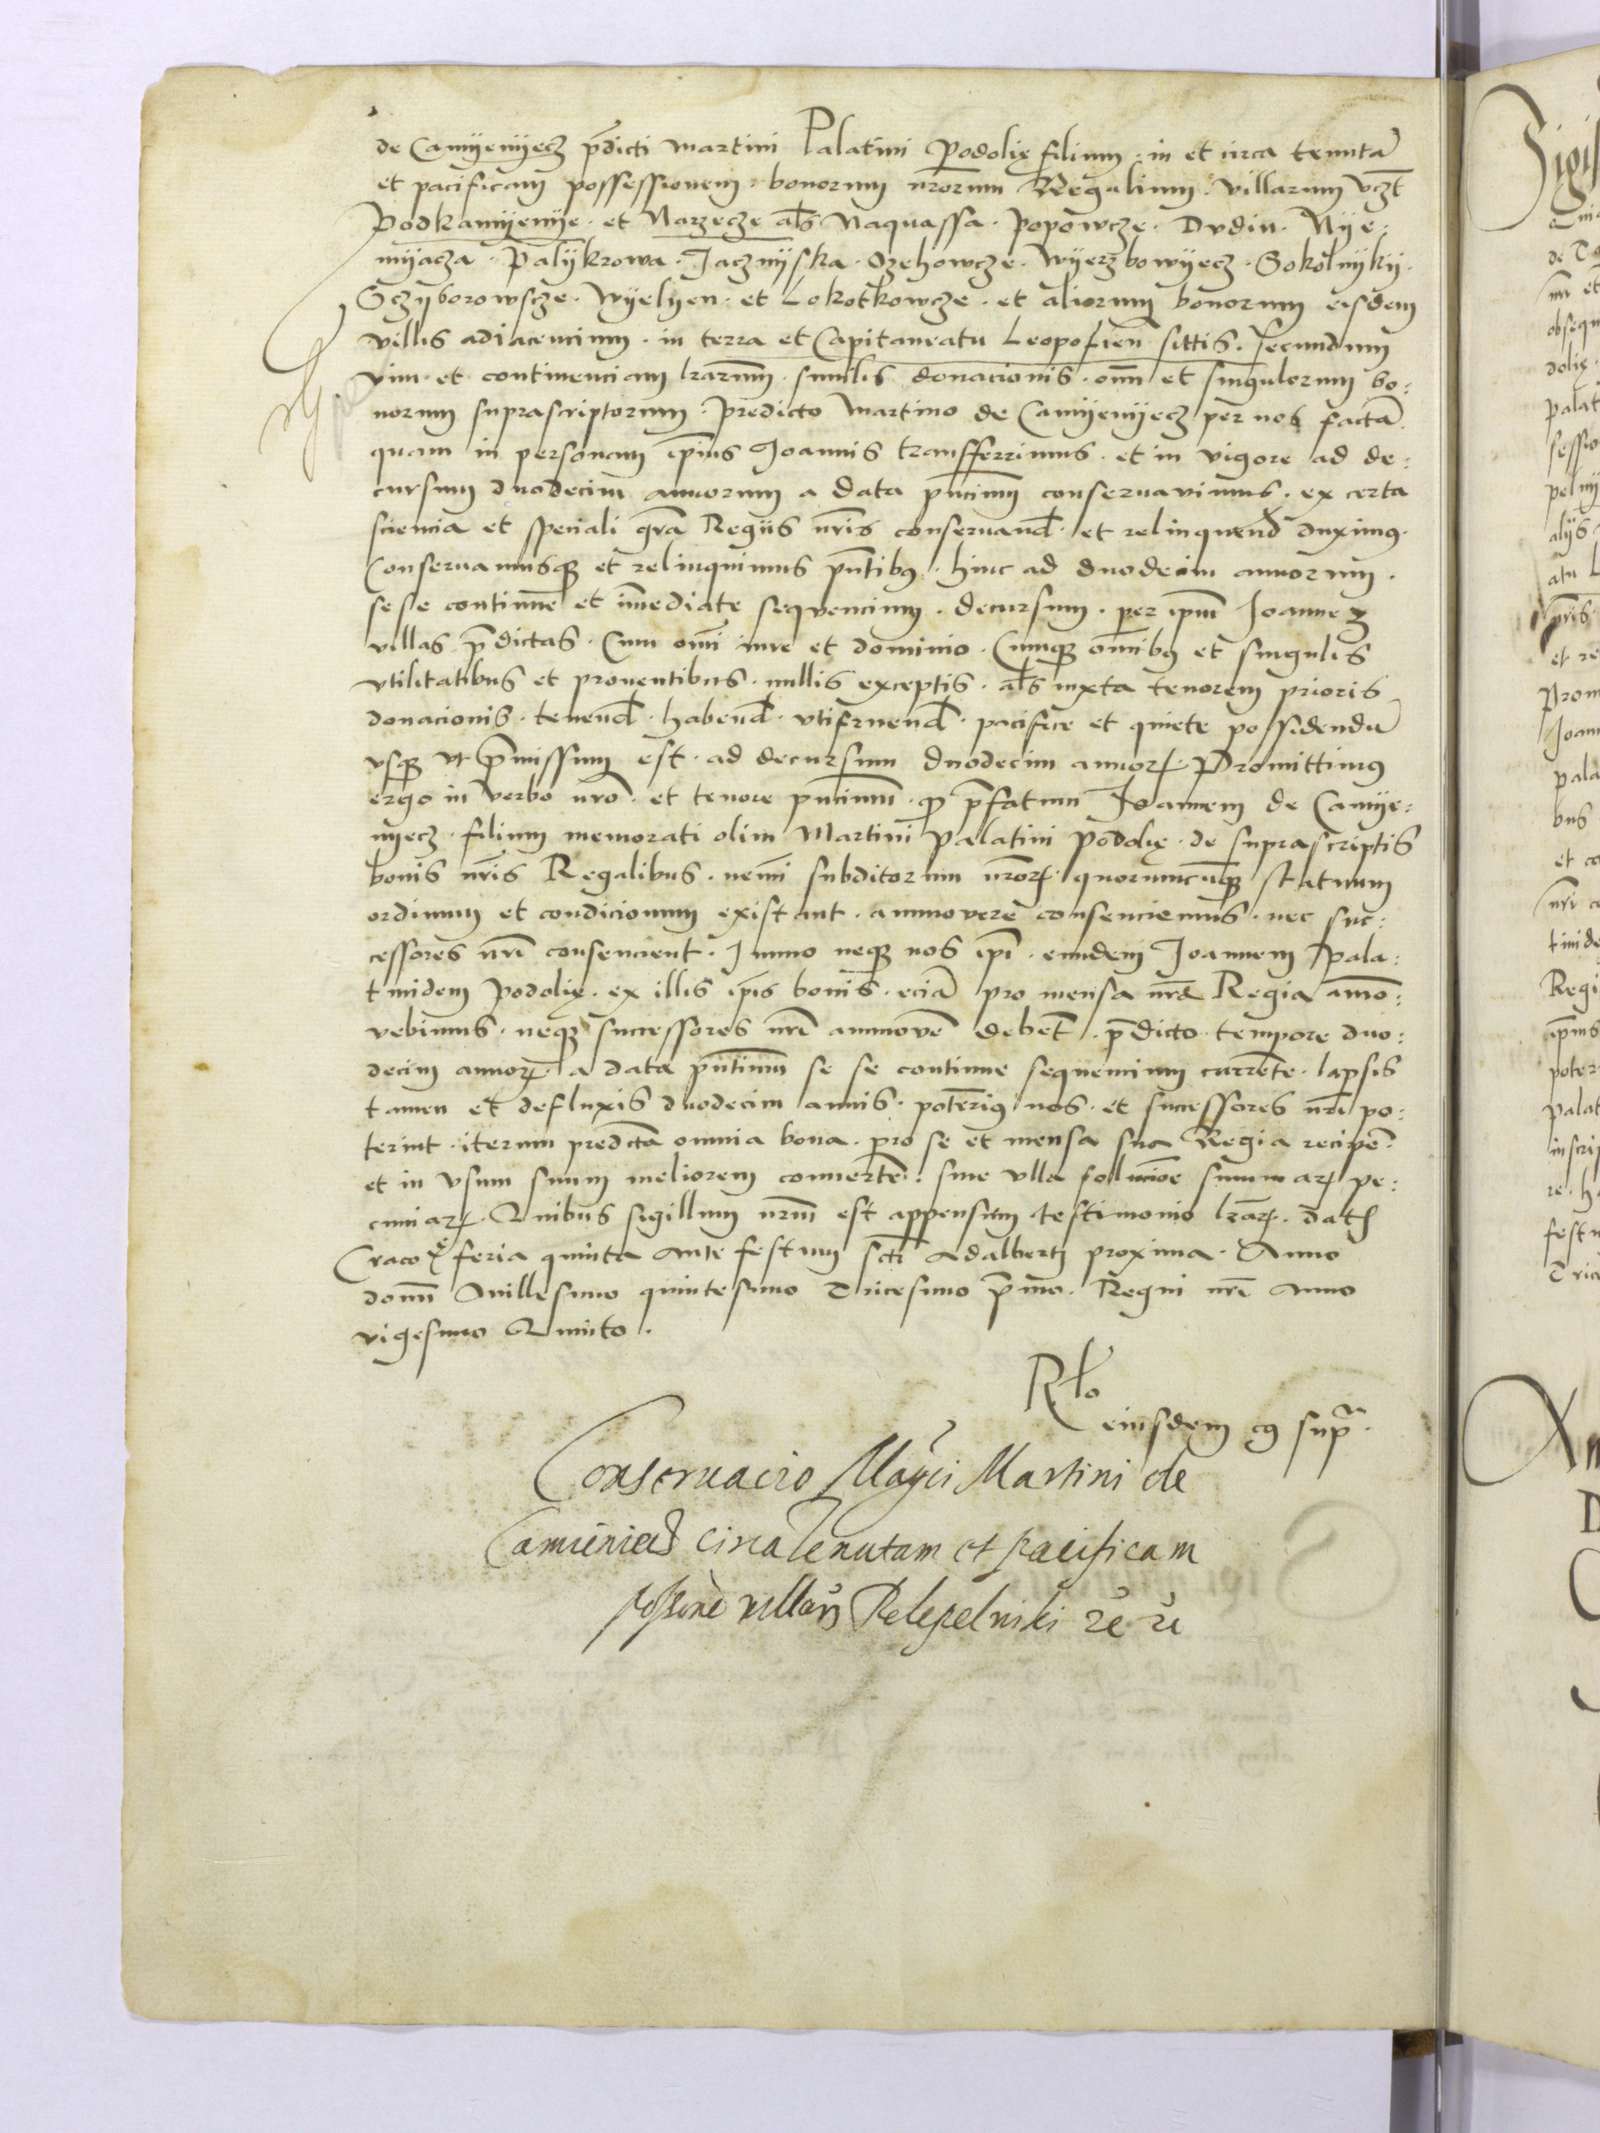 de Camyenyecz p̄dicti Martini Palatini Podolię filium · in et circa tenutā
et pacificam possessionem · bonorum nr̄orum Regalium · villarum vcz̄t
Podkamyenye · et Narzecze al̄s Naquassa · Popowcze · Dvdin · Nye:
myacza · Palykrowa · Jacznyska · Ozehowcze · Wyerzbowyecz · Sokolnyky ·
Sczyborowscze · Wyelyen · et Lokotkowcze · et aliorum bonorum eisdem
villis adiacencium · in terra et Capitaneatu Leopolien̄ sittis · secundum
vim · et continenciam lr̄arum̄ · similis donacionis · om̄ et singulorum bo:
norum suprascriptorum · predicto Martino de Camyenyecz per nos factā
quam in personam ip̄ius Joannis transferrimus · et in vigore ad de:
cursum duodecim annorum a data pn̄cium̄ conseruauimus · ex certa
sciencia et speciali gr̄a Regiis nr̄is conseruand̄ · et relinquend̄ duximus ·
Conseruamusq̄ et relinquimus pn̄tibus · hinc ad duodecim annorum ·
se se continue et im̄ediate sequencium · decursum · per ip̄um Joannem
villas p̄dictas · Cum om̄i iure et dominio · Cumq̄ om̄ibus et singulis
vtilitatibus et prouentibus · nullis exceptis · al̄s iuxta tenorem prioris
donacionis · tenend̄ · habend̄ · vtifruend̄ · pacifice et quiete possidendū
vsq̄ vt p̄missum est · ad decursum duodecim annorꝝ · Promittimus
ergo in verbo nr̄o · et tenore pn̄cium̄ · ꝙ p̄fatum Joannem de Camye:
nyecz · filium memorati olim Martini Palatini Podolię · de suprascriptis
bonis nr̄is Regalibus · nemi subditorum nr̄orꝝ · quorumcūq̄ statuum
ordinum et condicionum existant · ammovere consenciemus · nec suc:
cessores nr̄i consencient · Immo neq̄ nos ip̄i · eundem Joannem Pala:
tinidem Podolię · ex illis ip̄is bonis · eciā pro mensa nr̄a Regia amo:
vebimus · neq̄ successores nr̄i ammovē debent̄ · p̄dicto tempore duo:
decim annorꝝ · a data pn̄tium̄ se se continue sequencium currente · lapsis
tamen et defluxis duodecim annis · poterimus nos · et successores nr̄i po:
terint · iterum predicta omnia bona · pro se et mensa sua Regia recipē ·
et in vsum suum meliorem conuertē · sine vlla solucioē summarꝝ pe:
cuniarꝝ · Quibus sigillum nr̄um est appensum testimonio lr̄arꝝ · dat̄
Craco feria quinta ante festum scti Adalberti proxima · Anno
domi Millesimo quintesimo Tricesimo p̄mo · Regni nr̄i Anno
vigesimo Quinto ·
Rl̄o
eiusdem cꝰ sup̄ ·
Conseruacio Mag̃ci Martini de
Camieniecz circa Tenutam et pacificam
possionē villarꝝ Pelepelniki